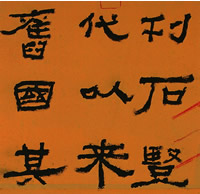 刊石豎
代以来
舊國其